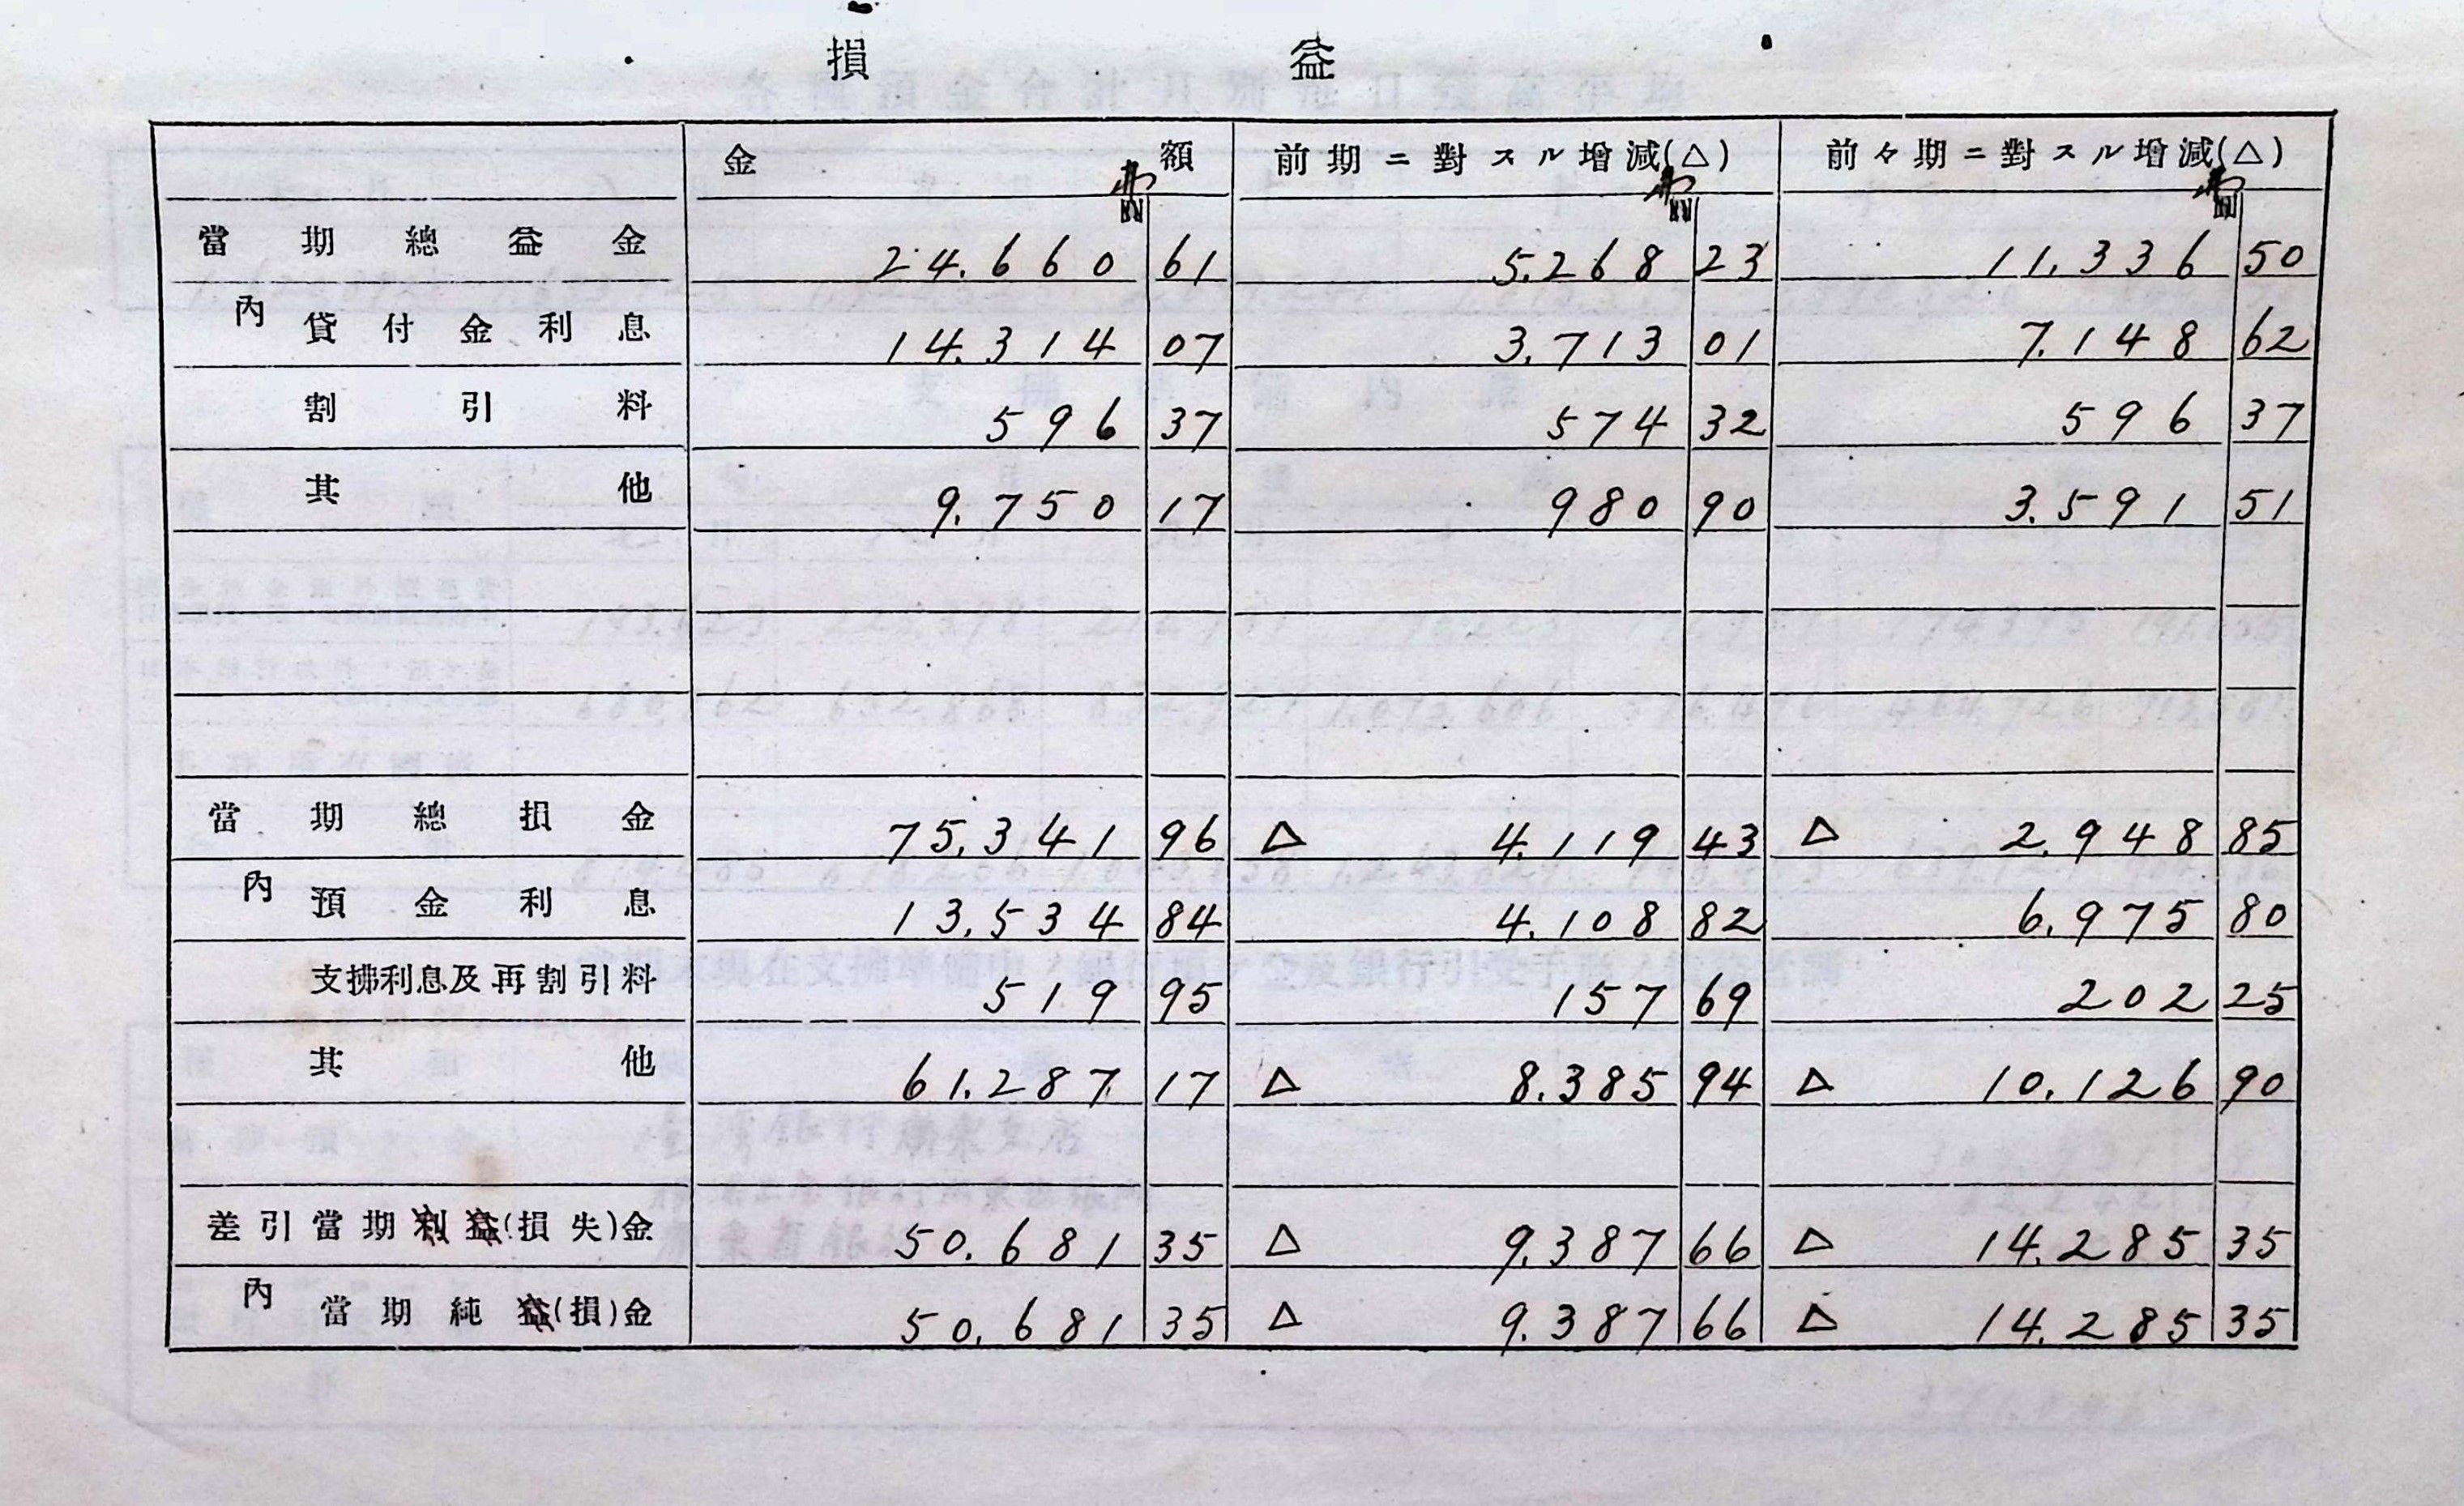 損益
金額 前期ニ對スル增減(△) 前々期ニ對スル增減(△)
當期總益金 24.660 61 5.268 23 11.336 50
內 貸付金利息 14.314 07 3.713 01 7.148 62
割引料 596 37 574 32 596 37
其他 9.750 17 980 90 3.591 51
當期總損金 75.341 96 △ 4.119 43 △ 2.948 85
內 預金利息 13.534 84 4.108 82 6.975 80
支拂利息及再割引料 519 95 157 69 202 25
其他 61.287 17 △ 8.385 94 △ 10.126 90
差引當期利益(損失)金 50.681 35 △ 9.387 66 △ 14.285 35
內 當期純益(損)金 50.681 35 △ 9.387 66 △ 14.285 35